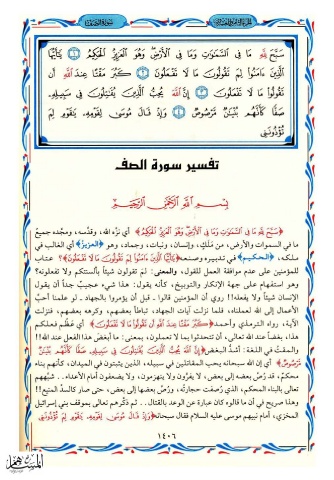 سَبَّحَ لِلَّهِ مَا فِي السَّمَاوَاتِ وَمَا فِي الْأَرْضِ وَهُوَ الْعَزِيزُ الْحَكِيمُ ١ يَا أَيُّهَا
الَّذِينَ ءَامَنُوا لِمَ تَقُولُونَ مَا لَا تَفْعَلُونَ ٢ كَبُرَ مَقْتًا عِندَ اللَّهِ أَن
تَقُولُوا مَا لَا تَفْعَلُونَ ٣ إِنَّ اللَّهَ يُحِبُّ الَّذِينَ يُقَاتِلُونَ فِي سَبِيلِهِ
صَفًّا كَأَنَّهُم بُنْيَانٌ مَّرْصُوصٌ ٤ وَإِذْ قَالَ مُوسَى لِقَوْمِهِ يَا قَوْمِ لِمَ
تُؤْذُونَنِي
تفسير سورة الصف
بِسْمِ اللَّهِ الرَّحْمَنِ الرَّحِيمِ
﴿سَبَّحَ لِلَّهِ مَا فِي السَّمَاوَاتِ وَمَا فِي الْأَرْضِ وَهُوَ الْعَزِيزُ الْحَكِيمُ﴾ أي نزَّه الله، وقدَّسه، ومجَّده جميعُ
ما في السموات والأرض، من مَلَكٍ، وإنسان، ونبات، وجماد، وهو ﴿العزيز﴾ أي الغالب في
ملكه، ﴿الحكيم﴾ في تدبيره وصنعه ﴿يَا أَيُّهَا الَّذِينَ ءَامَنُوا لِمَ تَقُولُونَ مَا لَا تَفْعَلُونَ﴾؟ عتاب
للمؤمنين على عدم موافقة العمل للقول، والمعنى: لمَ تقولون شيئاً بألسنتكم ولا تفعلونه؟
وهو استفهام على جهة الإنكار والتوبيخ، كأنه يقول: هذا شيء عجيبٌ جداً أن يقول
الإنسان شيئاً ولا يفعله!! روي أن المؤمنين قالوا ـ قبل أن يؤمروا بالجهاد ـ لو علمنا أحبَّ
الأعمال إلى الله لعملناه، فلما نزلت آيات الجهاد، تباطأ بعضهم، وكرهه بعضهم، فنزلت
الآية، رواه الترمذي وأحمد ﴿كَبُرَ مَقْتًا عِندَ اللَّهِ أَن تَقُولُوا مَا لَا تَفْعَلُونَ﴾ أي عَظُم فعلكم
هذا، بغضاً عند الله تعالى، أن تتحدثوا بما لا تعملون، بمعنى: ما أبغض هذا الفعل عند الله!!
والمقتُ في اللغة: أشدُّ البغض ﴿إِنَّ اللَّهَ يُحِبُّ الَّذِينَ يُقَاتِلُونَ فِي سَبِيلِهِ صَفًّا كَأَنَّهُم بُنْيَانٌ
مَّرْصُوصٌ﴾ أي إن الله سبحانه يحب المقاتلين في سبيله، الذين يثبتون في الميدان، كأنهم بناء
محكمٌ، قد رُصَّ بعضه إلى بعض، لا يفرُّون ولا ينهزمون، ولا يضعفون أمام الأعداء.. شبَّههم
تعالى بالبناء المحكم، الذي رُصفت حجارته، ورُصَّ بعضها إلى بعض، حتى صار كالسدِّ المنيع!!
وهذا صريح في أن ما قالوه كان عبارة عن الوعد بالقتال.. ثم ذكرهم تعالى بموقف بني إسرائيل
المخزي، أمام نبيهم موسى عليه السلام فقال سبحانه ﴿وَإِذْ قَالَ مُوسَى لِقَوْمِهِ يَا قَوْمِ لِمَ تُؤْذُونَنِي
١٤٠٦